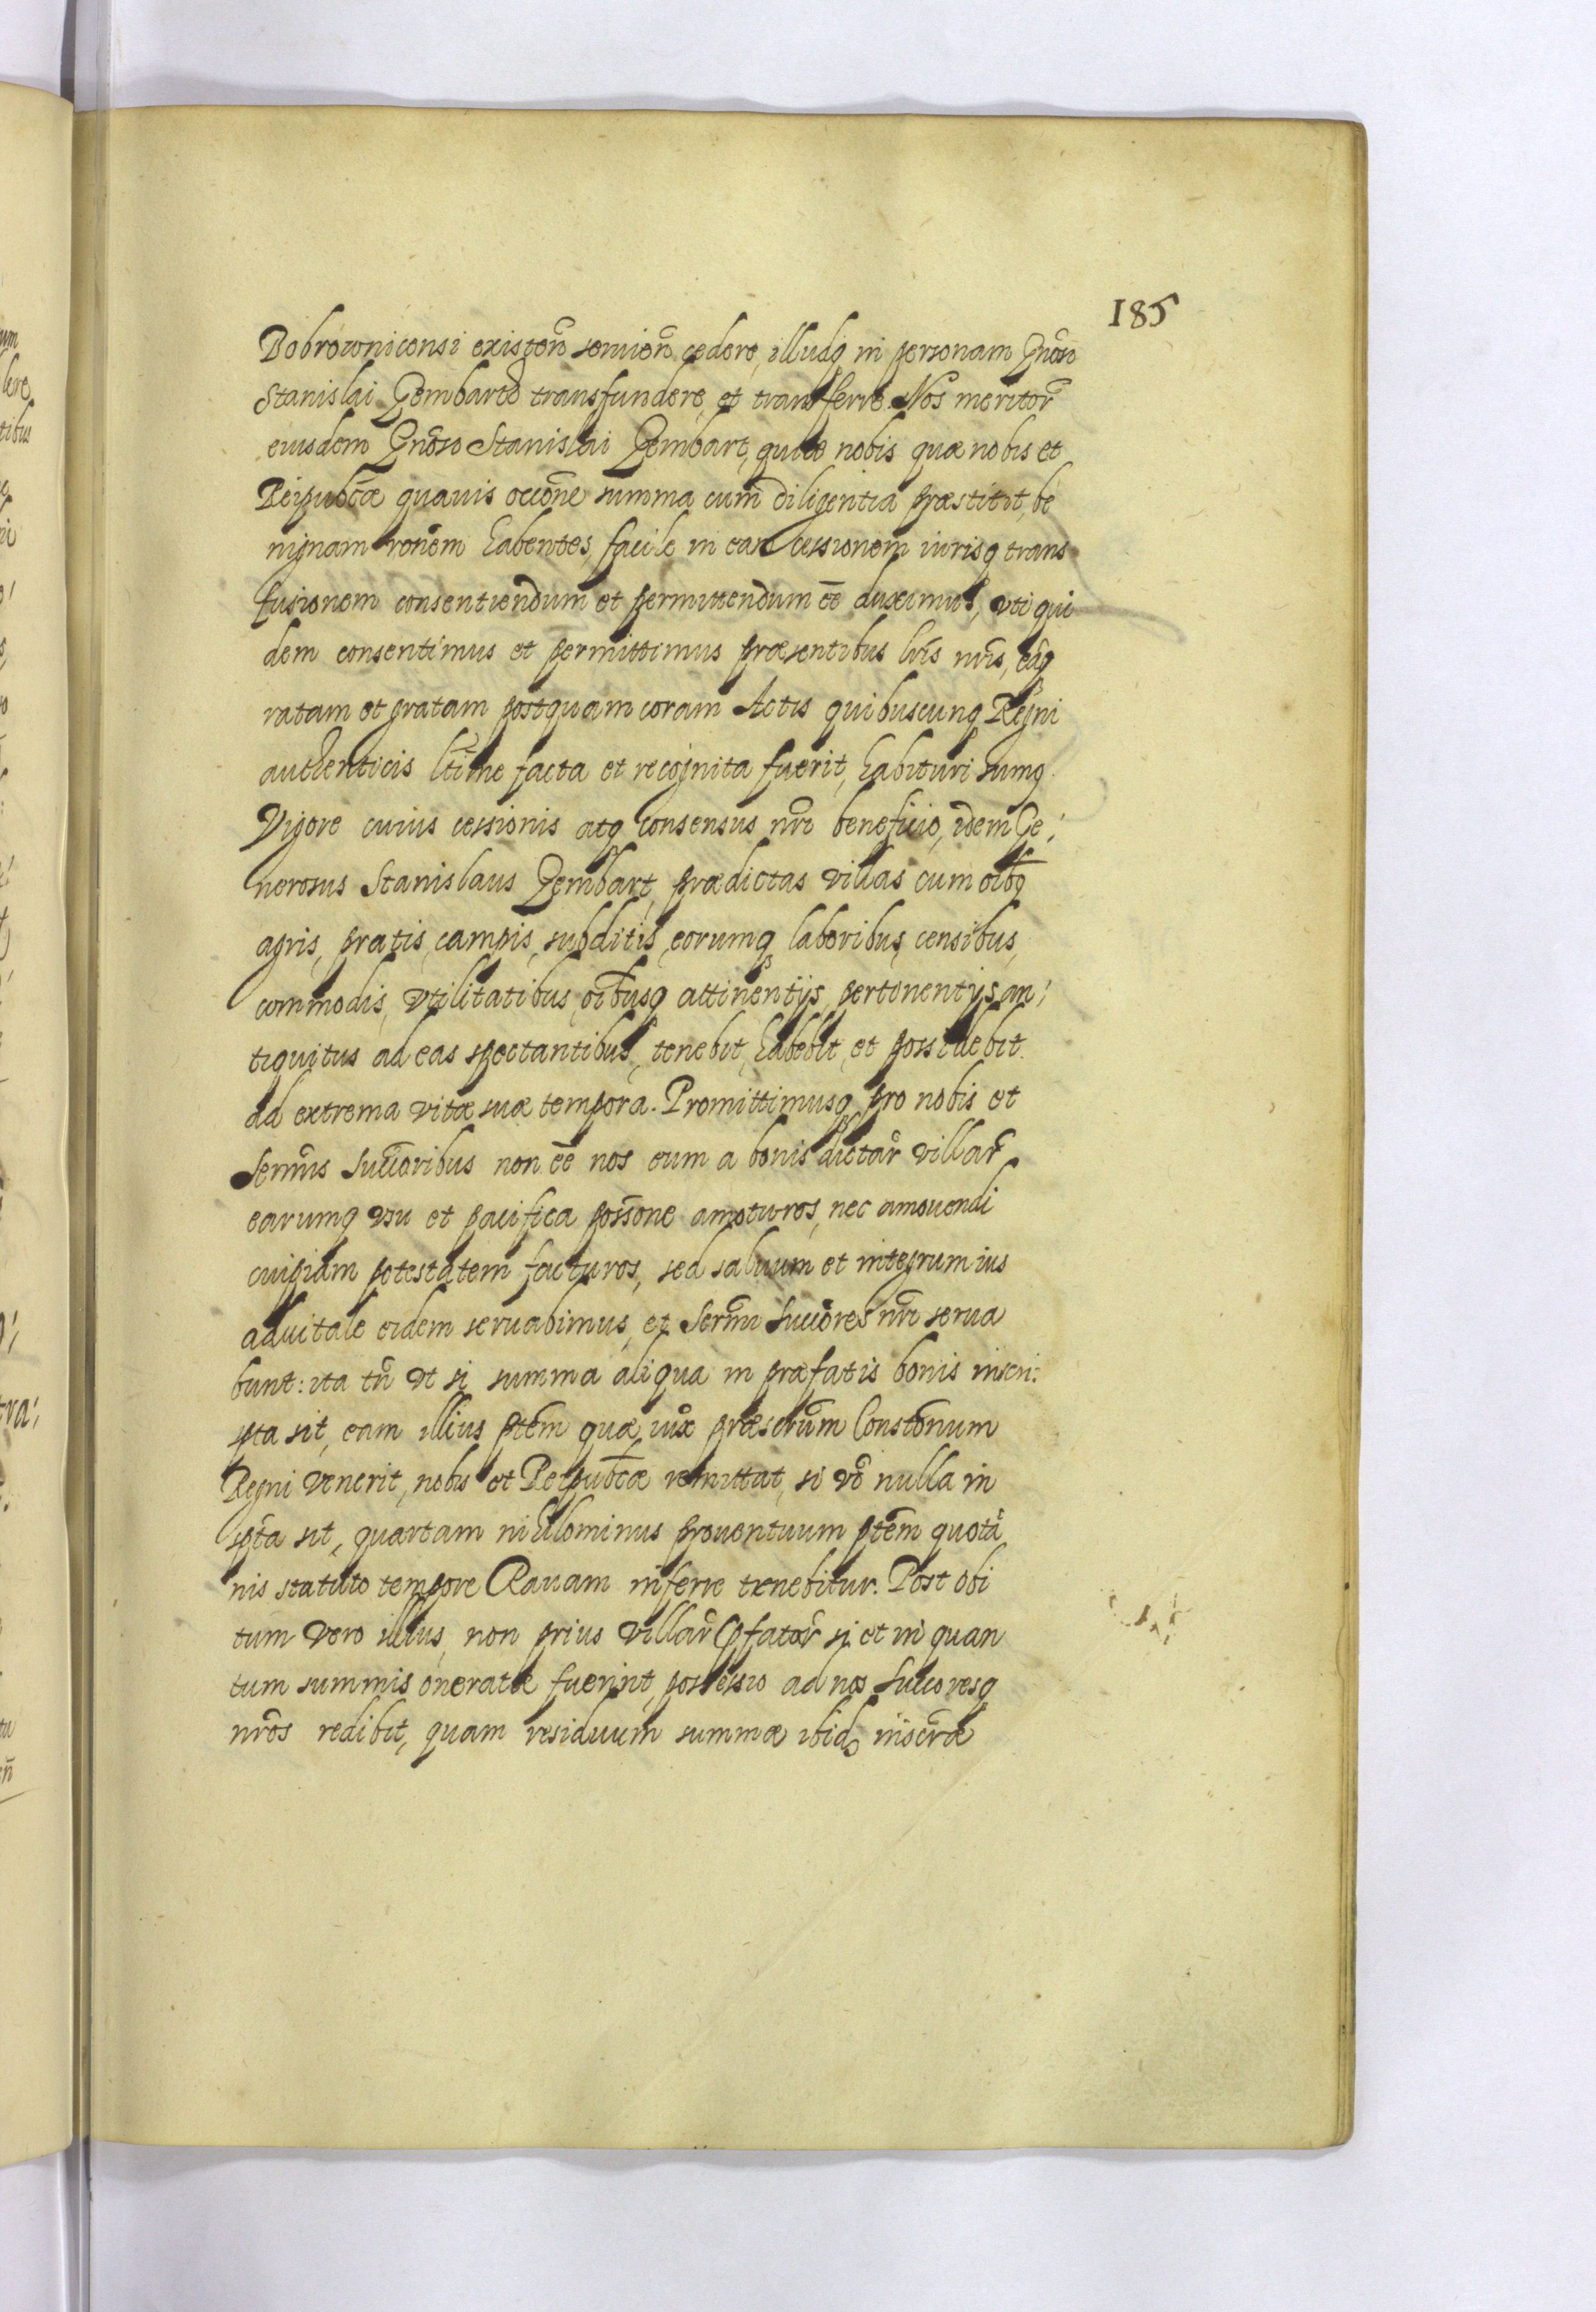 185
Bobrowniconsi existeñ seruieñ cedere, illudq in personam Gnõso
Stanislai Gembarto transfundere, et transferre. Nos meritor̃
eiusdem Gnõso Stanislai Gembart, quæ nobis quæ nobis et
Reipubcæ quauis occõne summa cum diligentia præstitit, be
nignam rõnem habentes, facile in eam cessionem iurisq trans
fusionem consentiendum et permittendum eẽ duximus, vti qui
dem consentimus et permittimus præsentibus lr̃is nr̃is, eãq
ratam et gratam postquam coram Actis quibuscunq Regni
authenticis ltime facta et recognita fuerit, habituri sumq.
Vigore cuius cessionis atq consensus nr̃i beneficio, idem Ge:
nerosus Stanislaus Gembart, prædictas villas cum oĩbq
agris, pratis, campis, subditis, eorumq laboribus, censibus,
commodis, vtilitatibus, oĩbusq attinentijs, pertinentijs an:
tiquitus ad eas spectantibus, tenebit, habebit, et possidebit
ad extrema vitæ suæ tempora. Promittimusq pro nobis et
Sermis Succoribus non eẽ nos eum a bonis dictar̃ villar̃
earumq vsu et pacifica possõne amoturos, nec amouendi
cuipiam potestatem facturos, sed saluum et integrum ius
aduitale eidem seruabimus, et Sermi Succores nr̃i serua
bunt: ita tñ vt si summa aliqua in præfatis bonis inscri:
pta sit, eam illius ptem quæ iux̃ præscrum Constonum
Regni venerit, nobis et Reipubcæ remittat, si vo nulla in
spta sit, quartam nihilominus prouentuum ptem quotã
nis statuto tempore Rauam inferre tenebitur. Post obi
tum vero illius, non prius villar̃ pfator̃ si et in quan
tum summis oneratæ fuerint, possessio ad nos Succoresq
nr̃os redibit, quam residuum summæ ibid inscræ